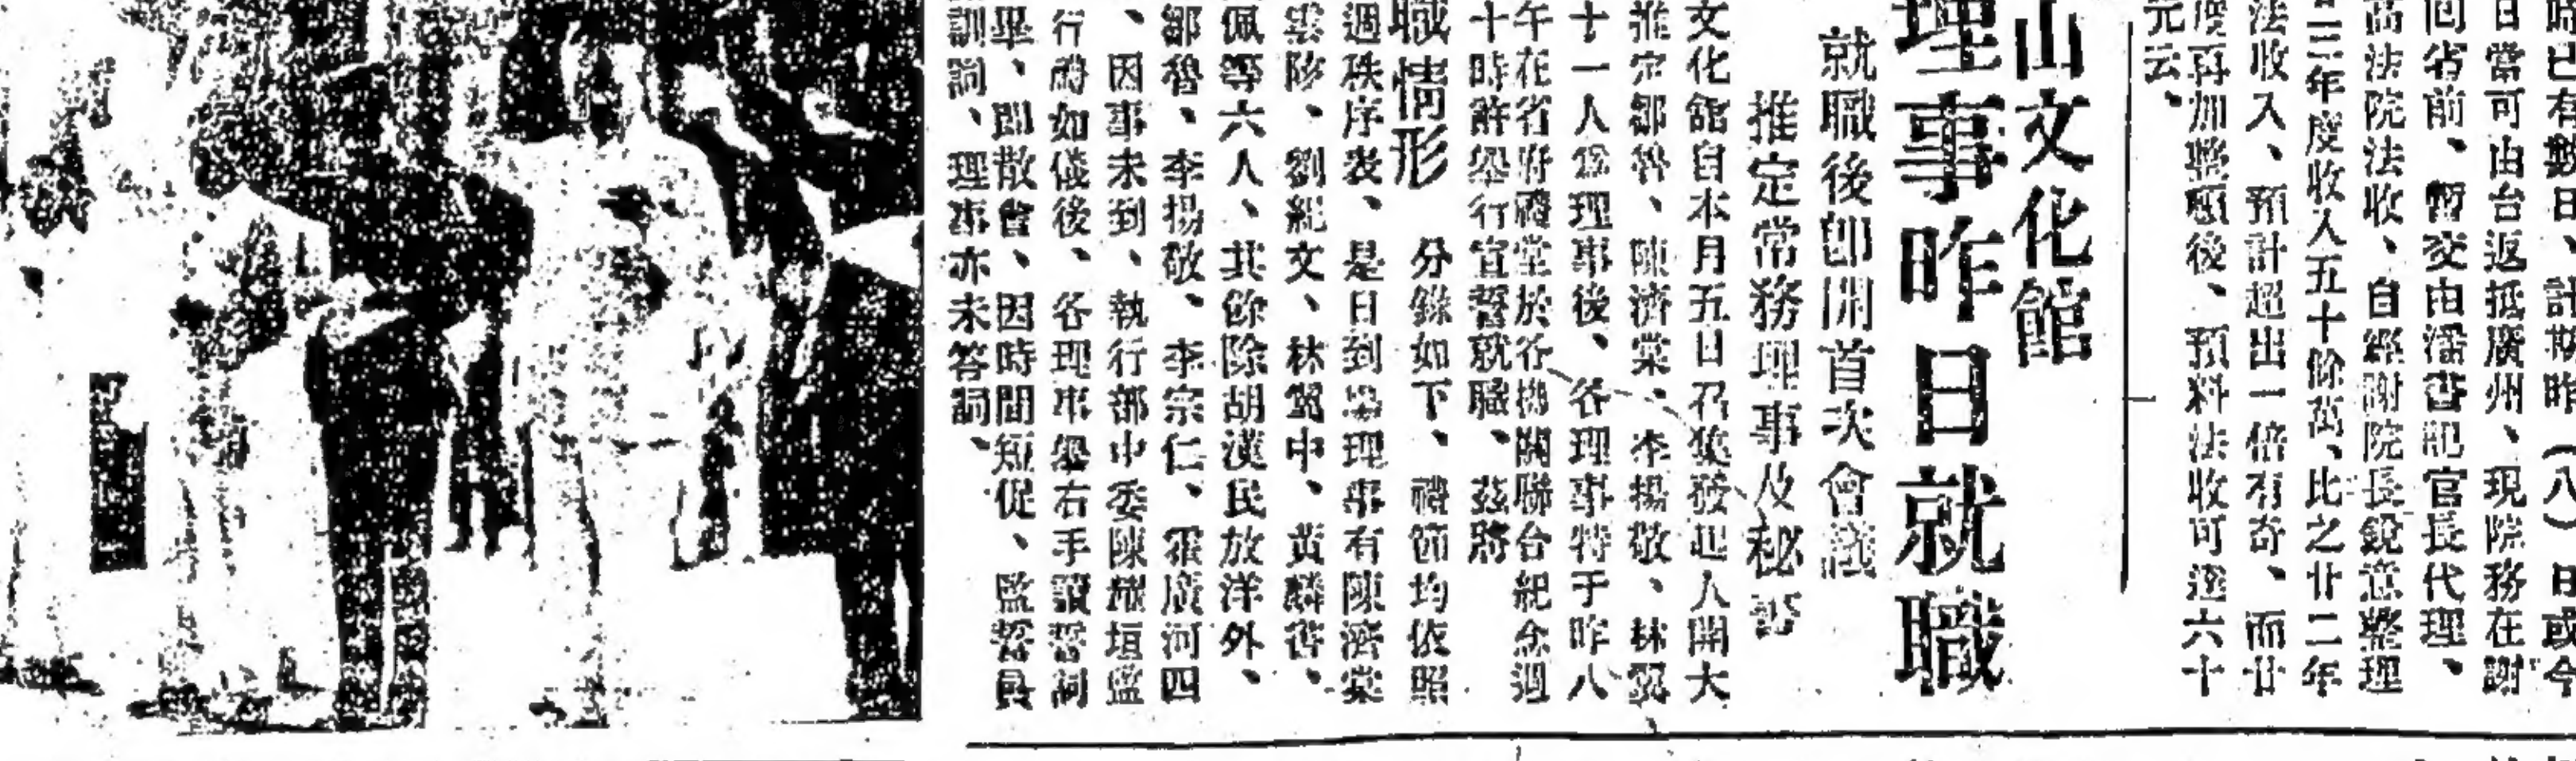 時已有數日、計期昨（八）日或今
日當可由台返抵廣州、現院務在謝
回省前、暫交由潘書記官長代理、
高法院法收、自經謝院長銳意整理
三年度收入五十餘萬、比之廿二年
法收入、預計超出一倍有奇、而廿
度再加整頓後、預料法收可達六十
元云、
山文化館
理事昨日就職
就職後卽開首次會議
推定常務理事及秘書
文化館自本月五日召集發起人開大
推定鄒魯、陳濟棠、李揚敬、林翼
十一人為理事後、各理事特于昨八
午在省府禮堂於各機關聯合紀念週
十時許舉行宣誓就職、茲將
職情形　分錄如下、禮節均依照
週秩序表、是日到塲理事有陳濟棠
雲陔、劉紀文、林翼中、黃麟書、
佩等六人、其餘除胡漢民放洋外、
鄒魯、李揚敬、李宗仁、霍廣河四
、因事未到、執行部中委陳耀垣監
行禮如儀後、各理事舉右手讀誓詞
畢、卽散會、因時間短促、監誓員
訓詞、理事亦未答詞、